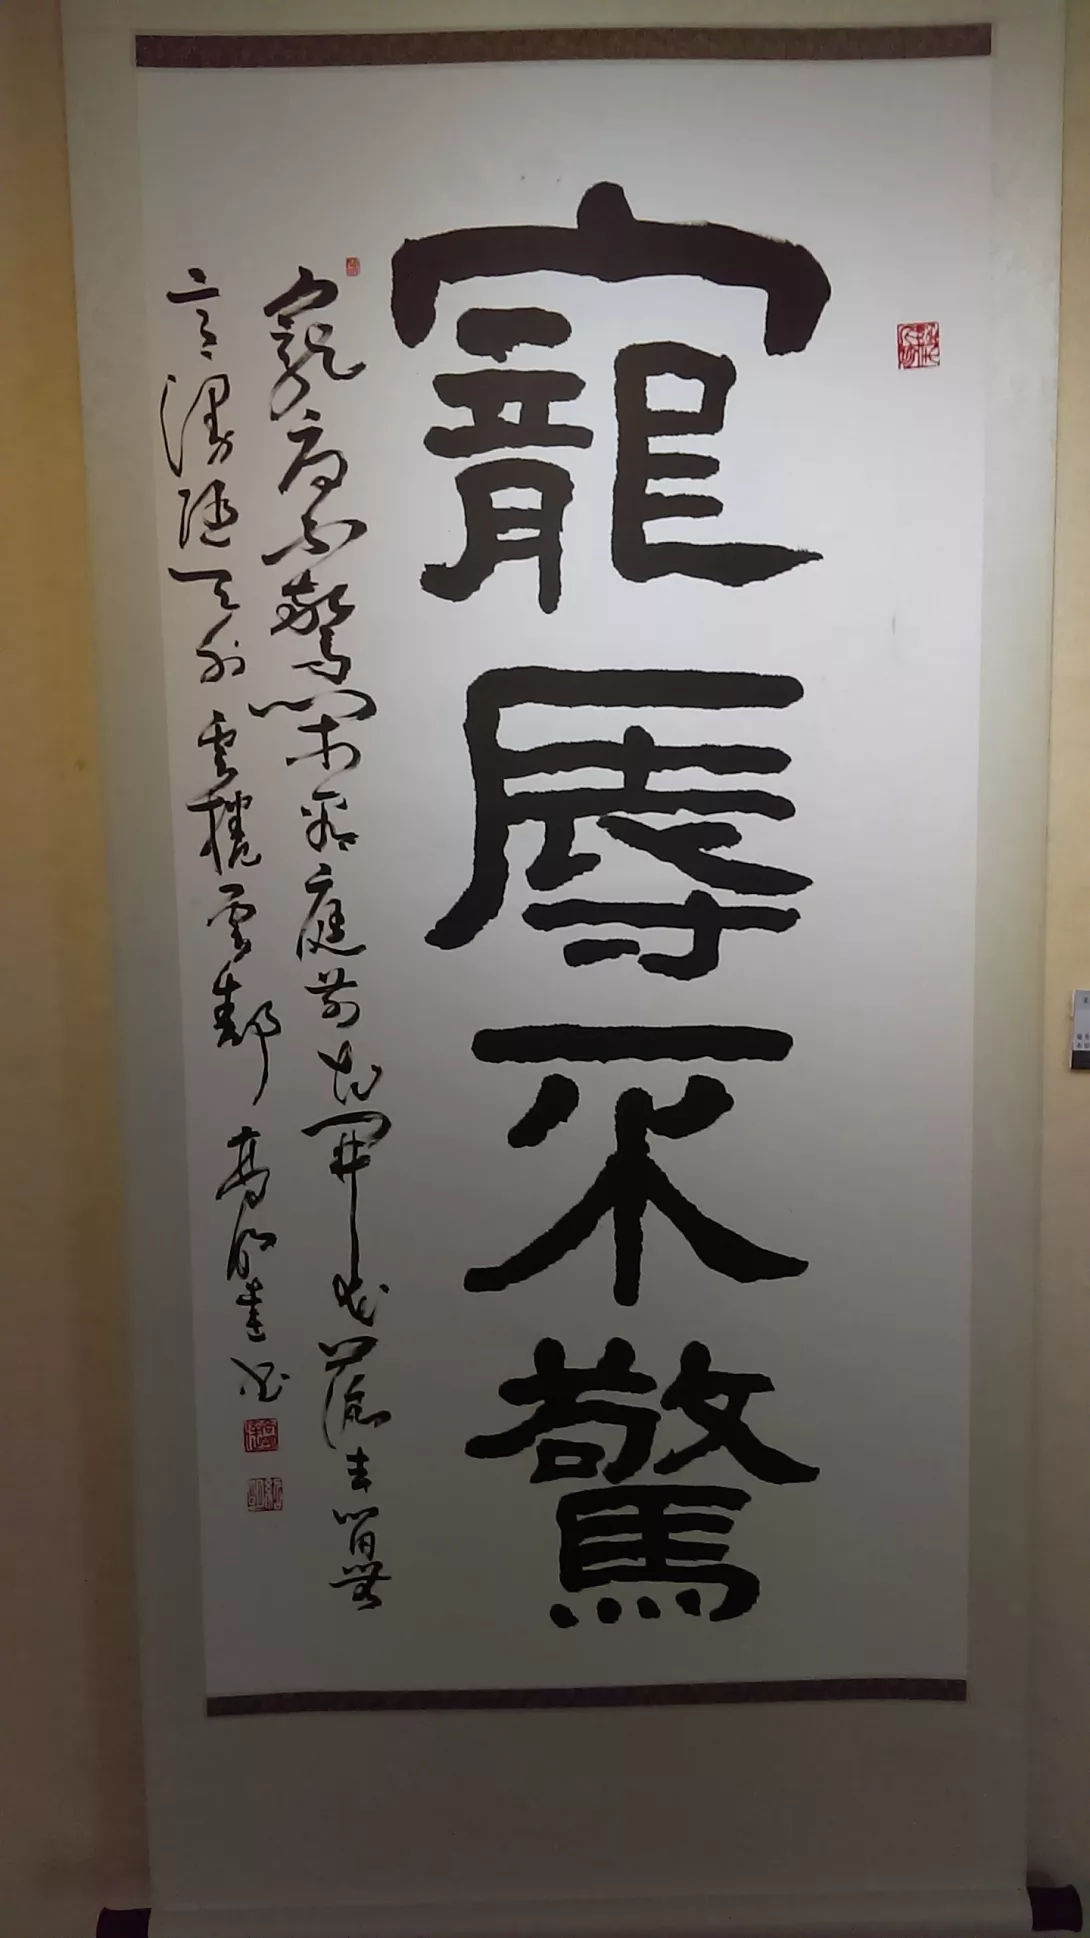 寵辱不驚
寵辱不驚閑看庭前花開花落去留無
意漫随天外雲捲雲舒 高